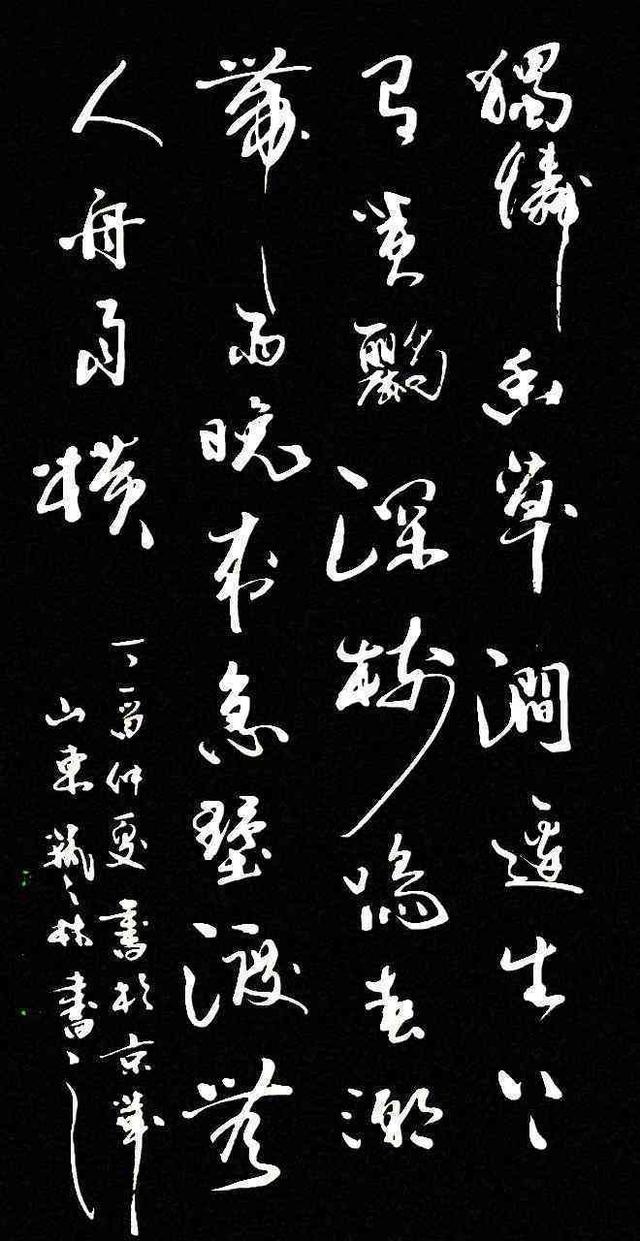 獨憐幽草澗邊生上
有黃鸝深樹鳴春潮
帶雨晚來急野渡無
人舟自橫
仲夏書於京華
山東林書